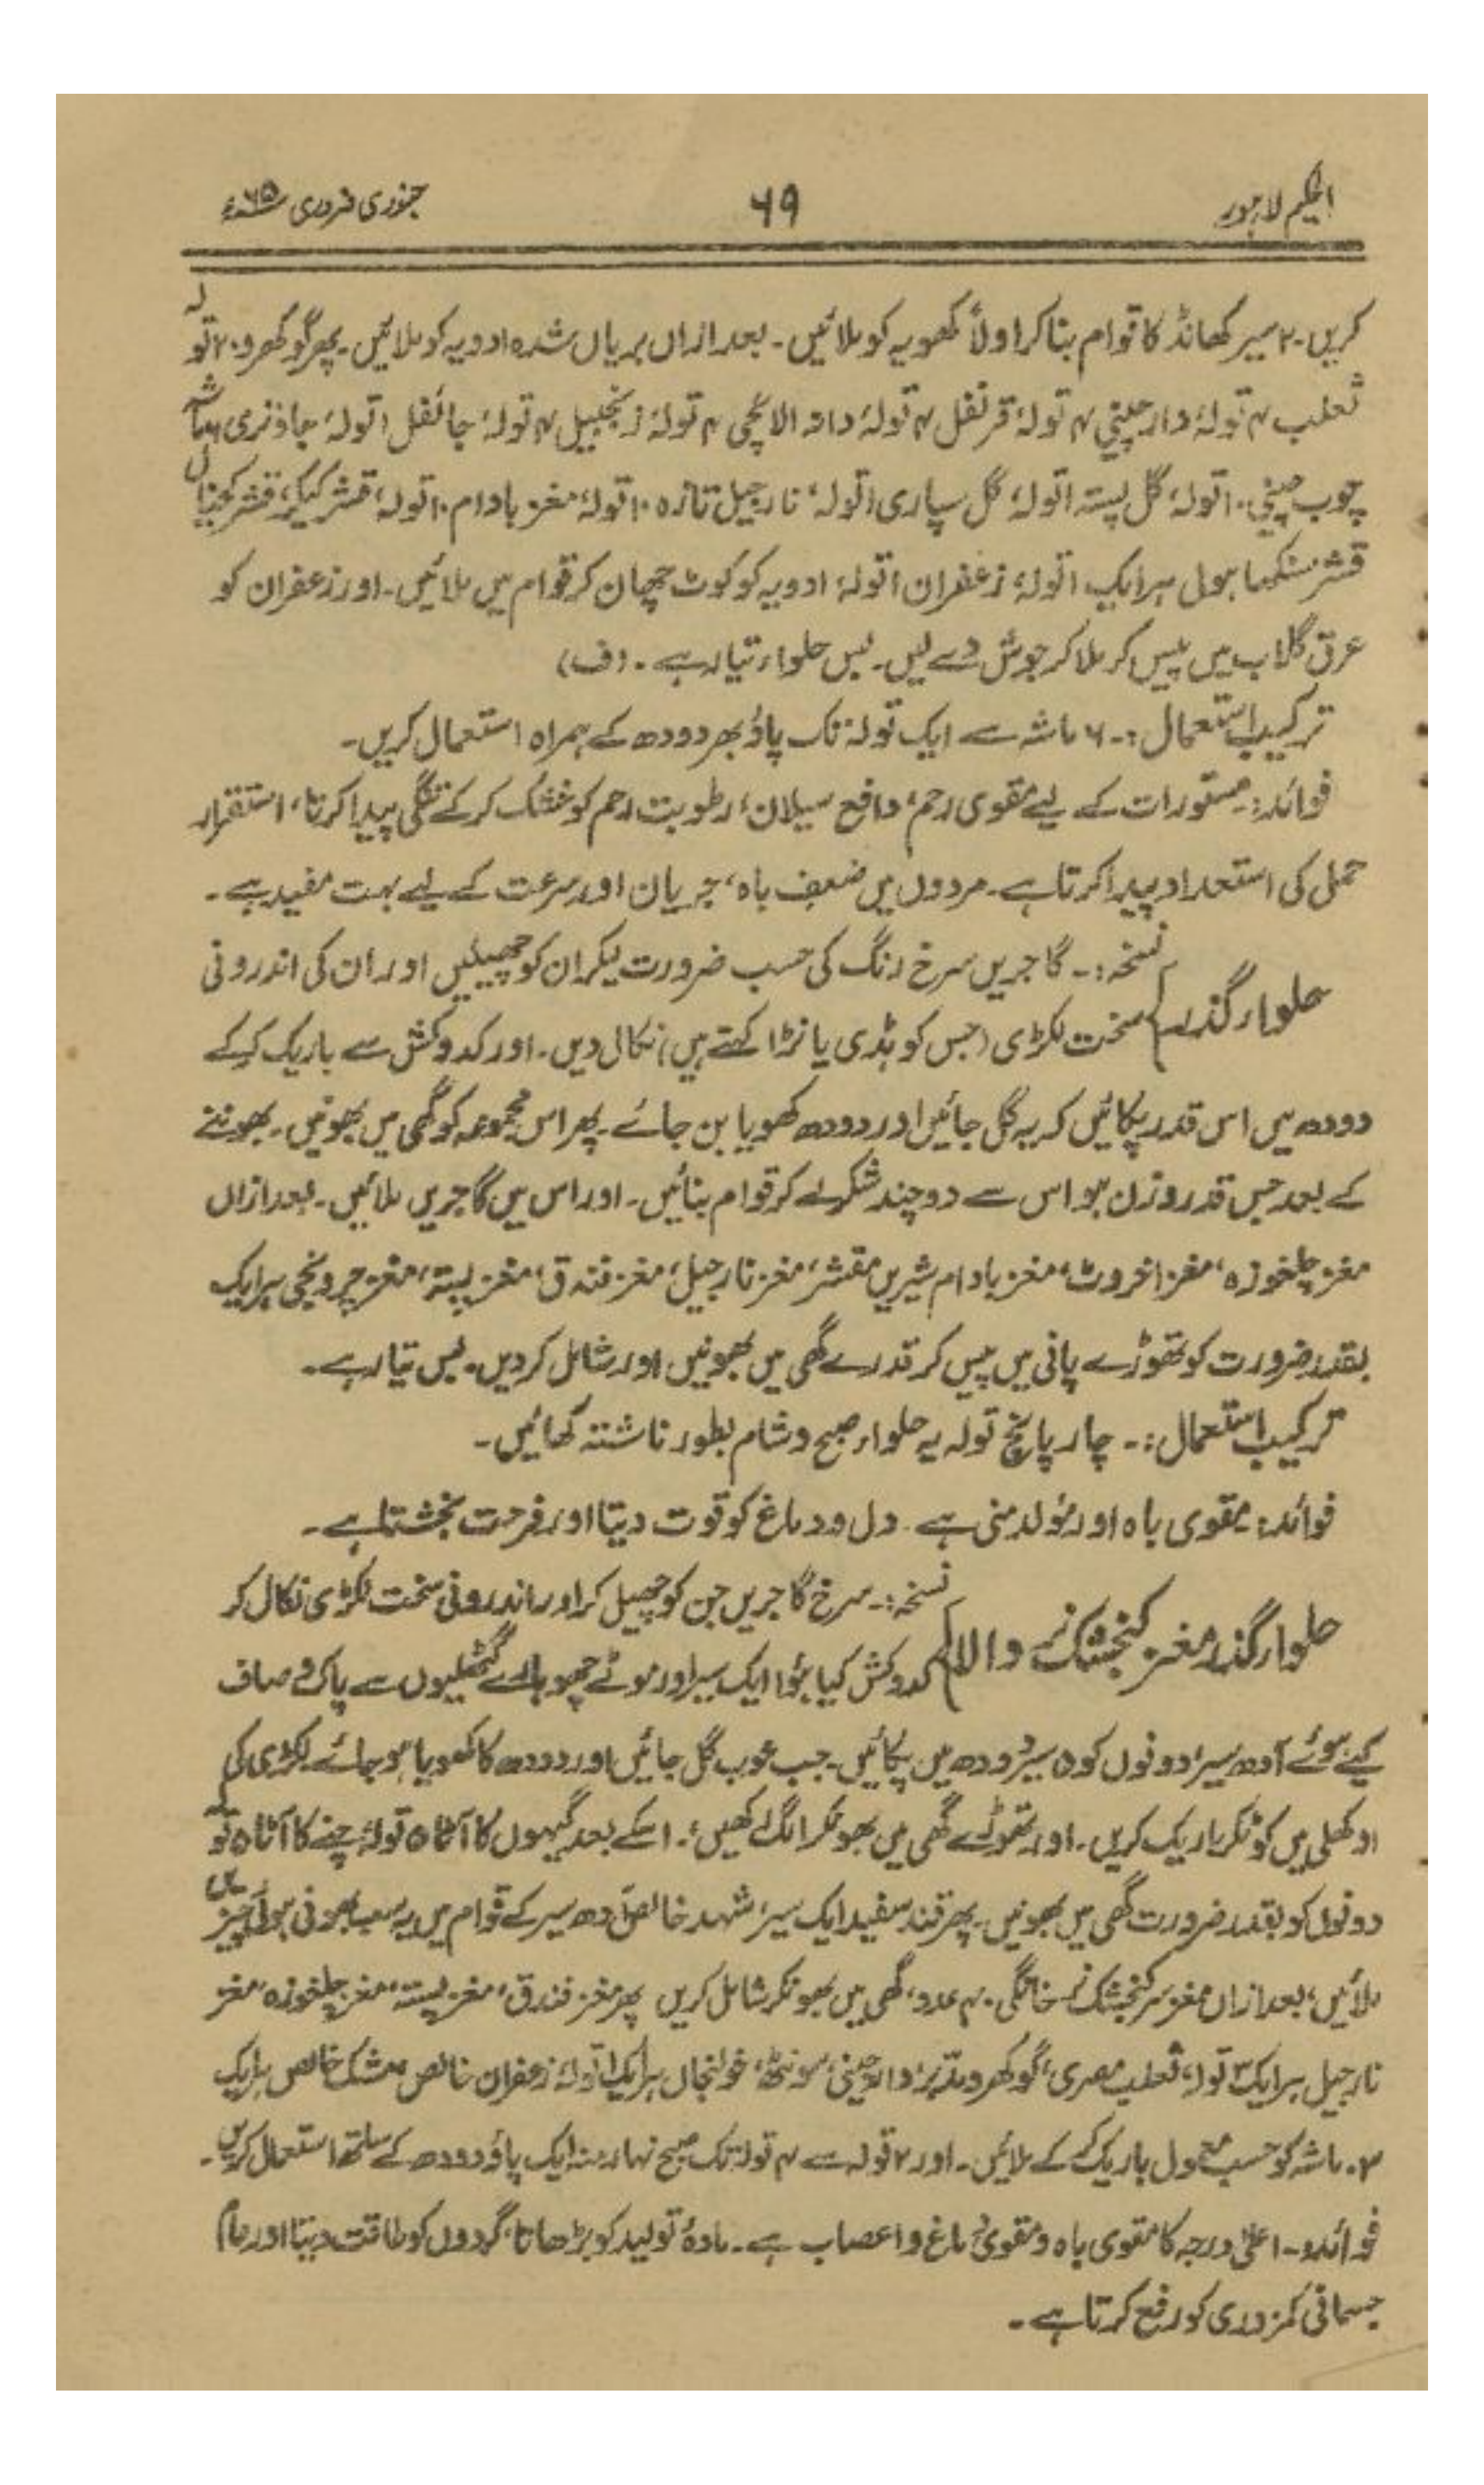 الحکیم لاہور
۶۹
جنوری فروری ۶۵ء
کریں۔ ۲ سیر کھانڈ کا قوام بنا کر اولاً کھویہ کو ملائیں۔ بعد ازاں بریاں شدہ ادویہ کو ملائیں۔ پھر گوکھرو ۲۰ تولہ
ثعلب ۴ تولہ، دارچینی ۴ تولہ، قرنفل ۴ تولہ، دانہ الائچی ۴ تولہ، زنجبیل ۴ تولہ، جائفل ۱ تولہ، جاوتری ۶ ماشہ
چوب چینی ۱۰ تولہ، گل پستہ ۱ تولہ، گل سپاری ۱ تولہ، نارجیل تازہ ۱۰ تولہ، مغز بادام ۱۰ تولہ، قشر کیکر، قشر کچنال
قشر سنکھا ہولی ہر ایک ۱ تولہ، زعفران ۱ تولہ، ادویہ کو کوٹ چھان کر قوام میں ملائیں۔ اور زعفران کو
عرق گلاب میں پیس کر ملا کر جوش دے لیں۔ بس حلوا تیار ہے۔ (ف)
ترکیب استعمال :۔ ۶ ماشہ سے ایک تولہ تک پاؤ بھر دودھ کے ہمراہ استعمال کریں۔
فوائد:۔ مستورات کے لیے مقوی رحم، دافع سیلان، رطوبت رحم کو خشک کر کے تنگی پیدا کرتا، استقرار
حمل کی استعداد پیدا کرتا ہے۔ مردوں میں ضعف باہ، جریان اور سرعت کے لیے بہت مفید ہے۔
حلوار گذر
نسخہ :۔ گاجریں سرخ رنگ کی حسب ضرورت لیکر ان کو چھیلیں اور ان کی اندرونی
سخت لکڑی (جس کو ہڈی یا نڑا کہتے ہیں) نکال دیں۔ اور کدو کش سے باریک کرکے
دودھ میں اس قدر پکائیں کہ یہ گل جائیں اور دودھ کھویا بن جائے۔ پھر اس مجموعہ کو گھی میں بھونیں۔ بھوننے
کے بعد جس قدر وزن ہو اس سے دو چند شکر لے کر قوام بنائیں۔ اور اس میں گاجریں ملائیں۔ بعد ازاں
مغز چلغوزہ، مغز اخروٹ، مغز بادام شیریں مقشر، مغز نارجیل، مغز فندق، مغز پستہ، مغز چرونجی ہر ایک
بقدر ضرورت کو تھوڑے پانی میں پیس کر قدرے گھی میں بھونیں اور شامل کر دیں۔ بس تیار ہے۔
ترکیب استعمال :۔ چار پانچ تولہ یہ حلوار صبح و شام بطور ناشتہ کھائیں۔
فوائد: مقوی باہ اور مولد منی ہے۔ دل و دماغ کو قوت دیتا اور فرحت بخشتا ہے۔
حلوار گذر مغز کنجشک نر والا
نسخہ:۔ سرخ گاجریں جن کو چھیل کر اور اندرونی سخت لکڑی نکال کر
کدوکش کیا ہوا ایک سیر اور موٹے چھوہارے گٹھلیوں سے پاک و صاف
کیے ہوئے آدھ سیر، دونوں کو ۵ سیر دودھ میں پکائیں۔ جب خوب گل جائیں اور دودھ کا کھویا ہو جائے لکڑی کی
اوکھلی میں کوٹکر باریک کریں۔ اور تھوڑے گھی میں بھونکر الگ رکھیں۔ اسکے بعد گیہوں کا آٹا ۵ تولہ، چنے کا آٹا ۵ تولہ
دونوں کو بقدر ضرورت گھی میں بھونیں۔ پھر قند سفید ایک سیر، شہد خالص آدھ سیر کے قوام میں یہ سب بھونی ہوئی چیزیں
ملائیں، بعد ازاں مغز سر کنجشک نر خانگی ۴۰ عدد، گھی میں بھونکر شامل کریں پھر مغز فندق، مغز پستہ، مغز چلغوزہ، مغز
نارجیل ہر ایک ۳ تولہ، ثعلب مصری، گوکھرو مدبر، دارچینی، سونٹھ، خولنجان ہر ایک ۱ تولہ، زعفران خالص، مشک خالص ہر ایک
۳ ماشہ کو حسب معمول باریک کر کے ملائیں۔ اور ۲ تولہ سے ۴ تولہ تک صبح نہار منہ ایک پاؤ دودھ کے ساتھ استعمال کریں۔
فوائد:۔ اعلیٰ درجہ کا مقوی باہ و مقوی دماغ و اعصاب ہے۔ مادۂ تولید کو بڑھاتا، گردوں کو طاقت دیتا اور عام
جسمانی کمزوری کو رفع کرتا ہے۔